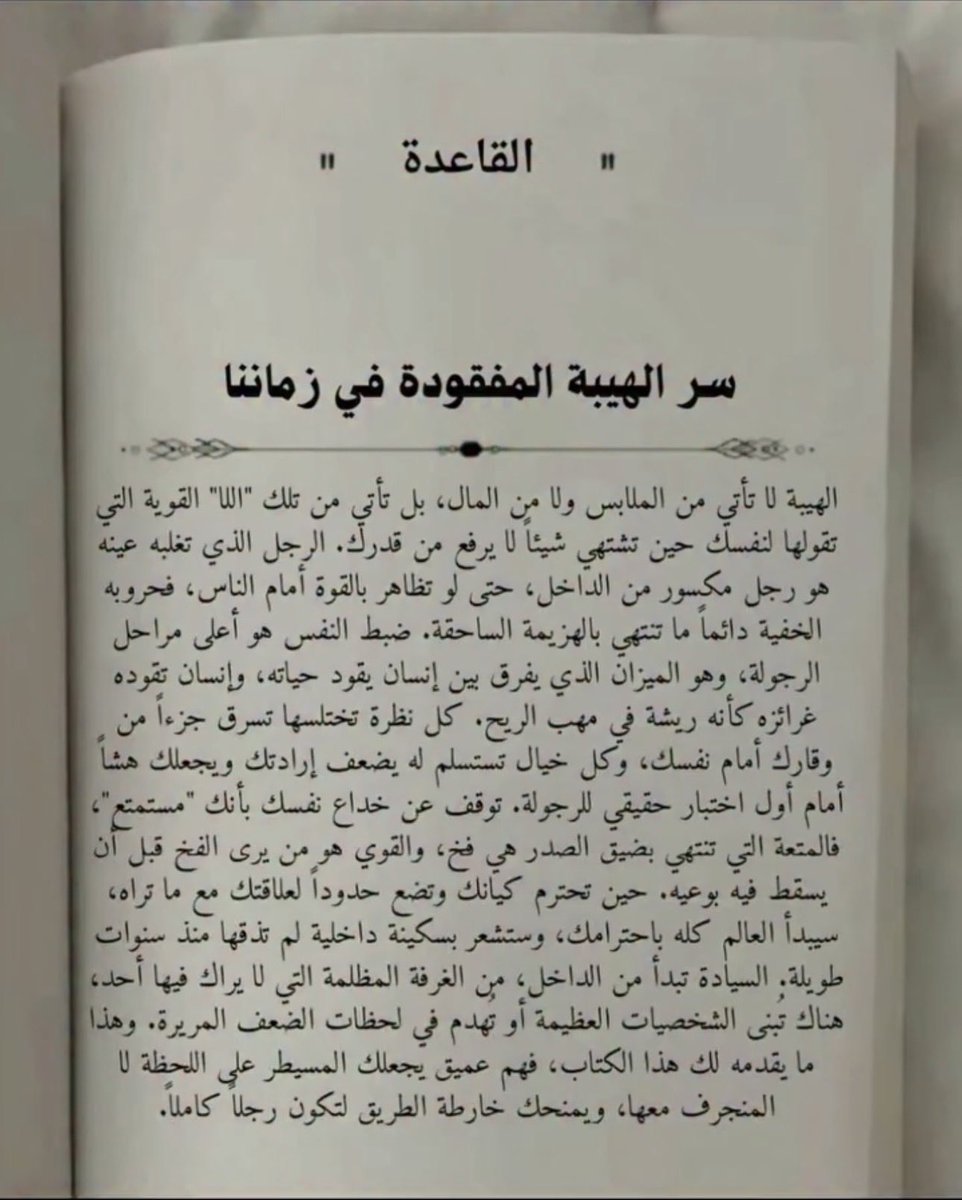 " القاعدة "
سر الهيبة المفقودة في زماننا
الهيبة لا تأتي من الملابس ولا من المال، بل تأتي من تلك "اللا" القوية التي
تقولها لنفسك حين تشتهي شيئاً لا يرفع من قدرك. الرجل الذي تغلبه عينه
هو رجل مكسور من الداخل، حتى لو تظاهر بالقوة أمام الناس، فحروبه
الخفية دائماً ما تنتهي بالهزيمة الساحقة. ضبط النفس هو أعلى مراحل
الرجولة، وهو الميزان الذي يفرق بين إنسان يقود حياته، وإنسان تقوده
غرائزه كأنه ريشة في مهب الريح. كل نظرة تختلسها تسرق جزءاً من
وقارك أمام نفسك، وكل خيال تستسلم له يضعف إرادتك ويجعلك هشاً
أمام أول اختبار حقيقي للرجولة. توقف عن خداع نفسك بأنك "مستمتع"،
فالمتعة التي تنتهي بضيق الصدر هي فخ، والقوي هو من يرى الفخ قبل أن
يسقط فيه بوعيه. حين تحترم كيانك وتضع حدوداً لعلاقتك مع ما تراه،
سيبدأ العالم كله باحترامك، وستشعر بسكينة داخلية لم تذقها منذ سنوات
طويلة. السيادة تبدأ من الداخل، من الغرفة المظلمة التي لا يراك فيها أحد،
هناك تُبنى الشخصيات العظيمة أو تُهدم في لحظات الضعف المريرة. وهذا
ما يقدمه لك هذا الكتاب، فهم عميق يجعلك المسيطر على اللحظة لا
المنجرف معها، ويمنحك خارطة الطريق لتكون رجلاً كاملاً.